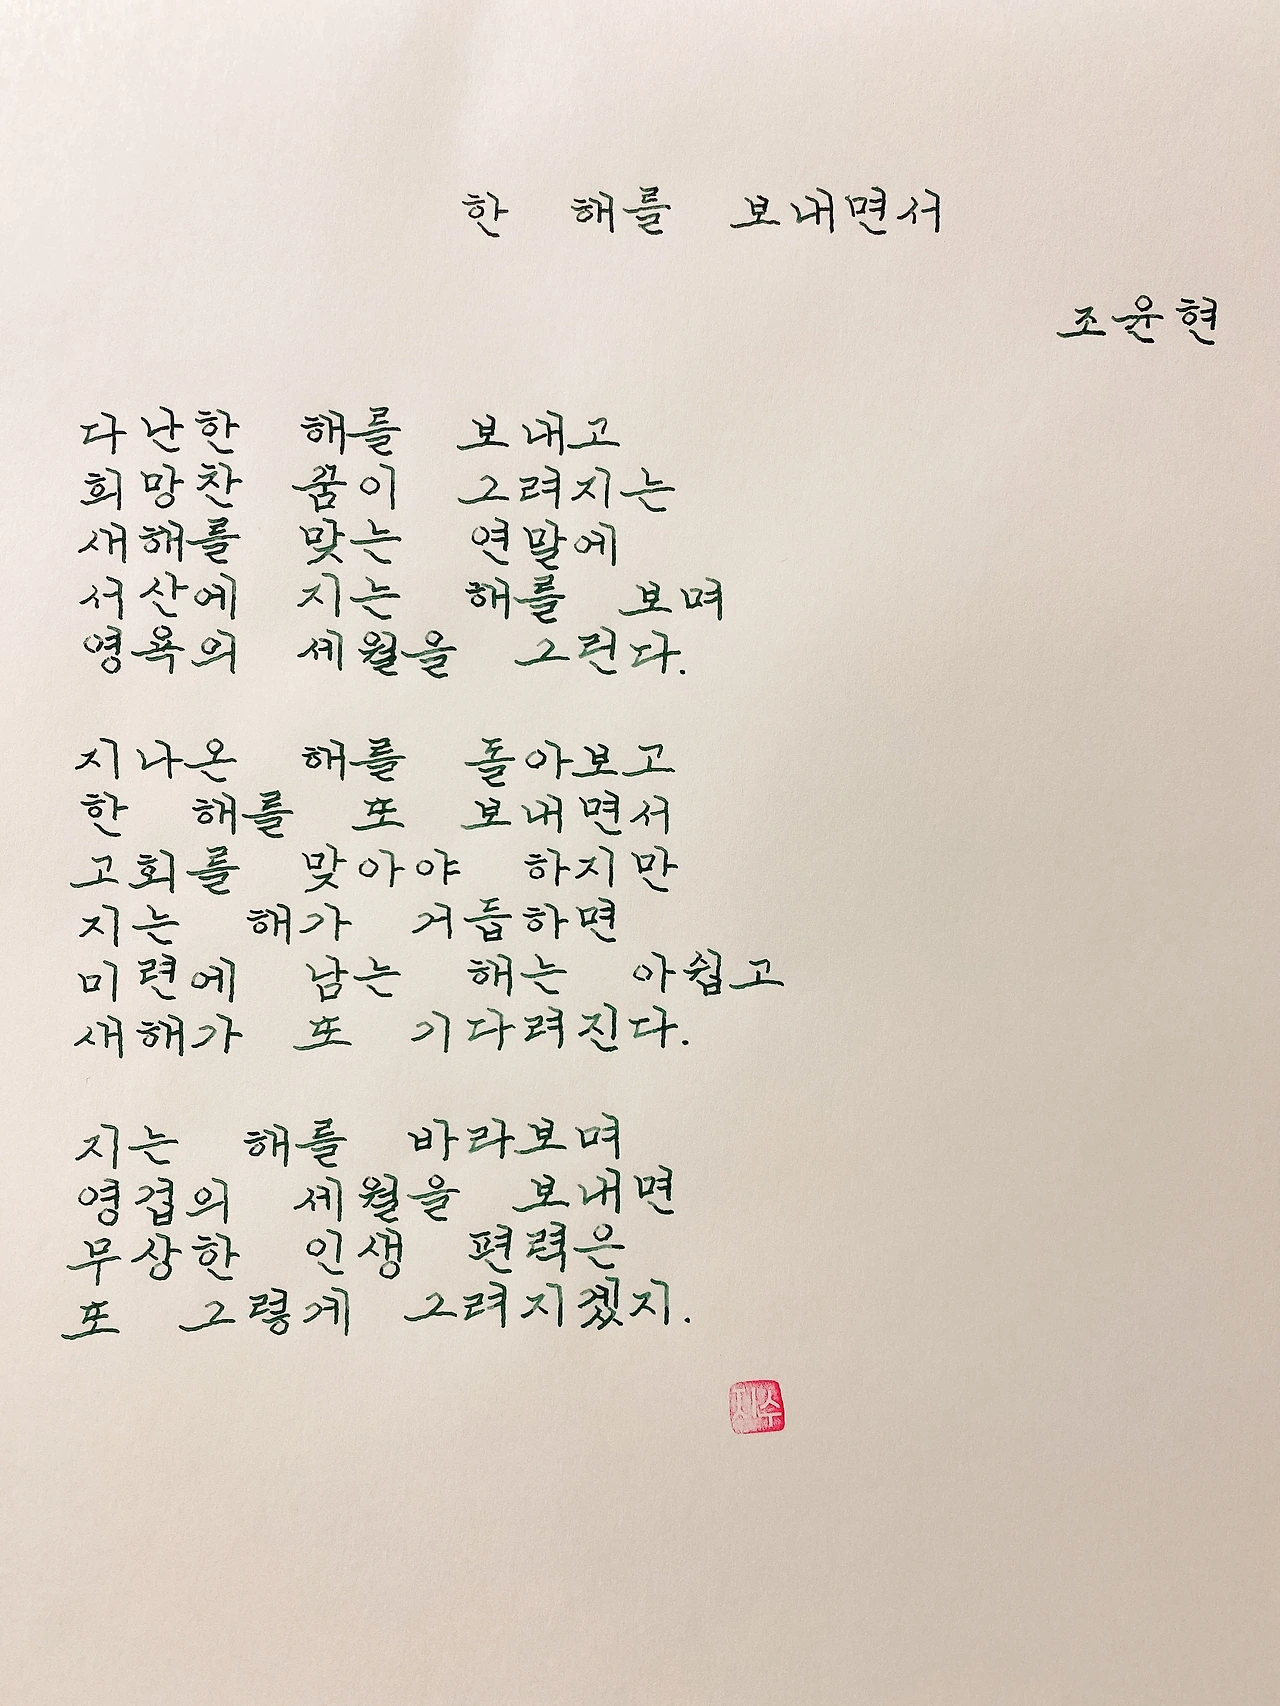 한 해를 보내면서
조윤현
다난한 해를 보내고
희망찬 꿈이 그려지는
새해를 맞는 연말에
서산에 지는 해를 보며
영욕의 세월을 그린다.
지나온 해를 돌아보고
한 해를 또 보내면서
고희를 맞아야 하지만
지는 해가 거듭하면
미련에 남는 해는 아쉽고
새해가 또 기다려진다.
지는 해를 바라보며
영겁의 세월을 보내면
무상한 인생 편력은
또 그렇게 그려지겠지.